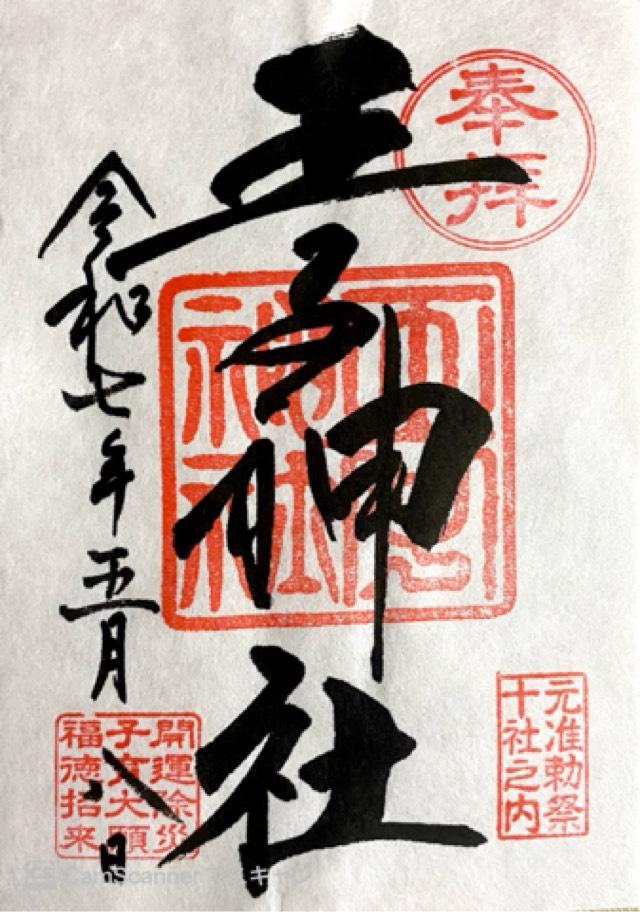 奉拝
元准勅祭
十社之内
王子神社
王子
神社
令和七年五月八日
開運除災
子育大願
福徳招来
CamScanner